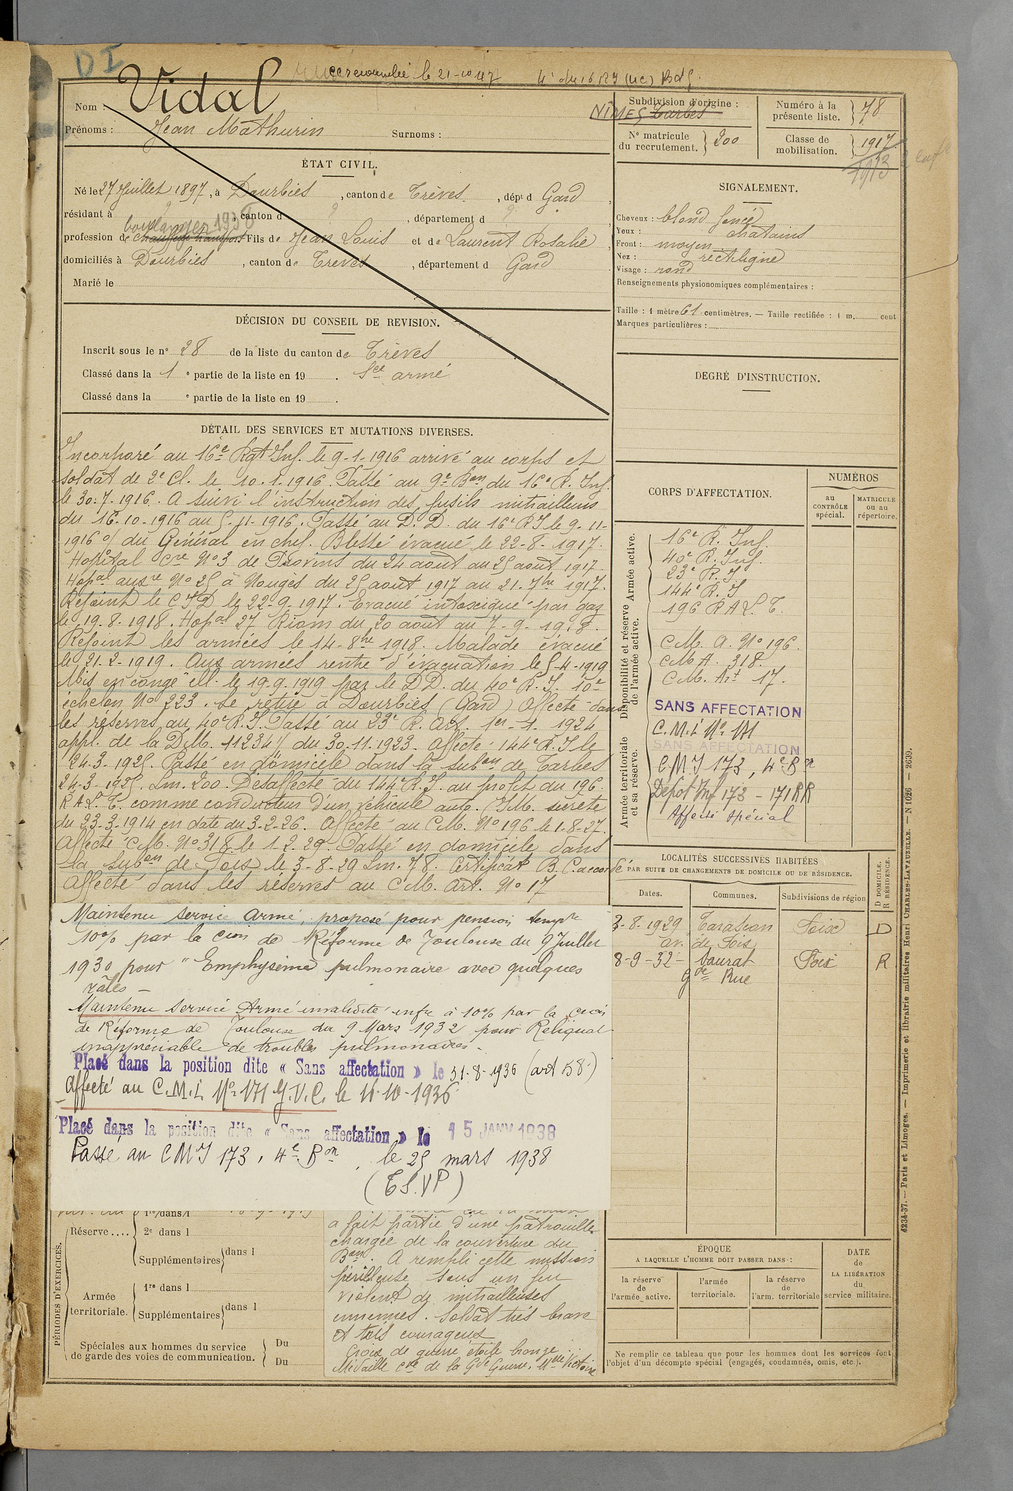 DI
recensemblée le 21-10-47
Nom : Vidal
Prénoms : Jean Mathurin Surnoms :
ÉTAT CIVIL.
Né le 27 Juillet 1897, à Dourbies, canton de Trèves, dépt d Gard
résidant à ?, canton d ?, département d ?
boulanger 1936
profession de chauffeur transport Fils de Jean Louis et de Laurent Rosalie
domiciliés à Dourbies, canton de Treves, département d Gard
Marié le
DÉCISION DU CONSEIL DE REVISION.
Inscrit sous le n° 28 de la liste du canton de Trèves
Classé dans la 1 e partie de la liste en 19 . Sce armé
Classé dans la e partie de la liste en 19 .
DÉTAIL DES SERVICES ET MUTATIONS DIVERSES.
Incorporé au 16e Rgt Inf. le 9-1-1916 arrivé au corps et
soldat de 2e Cl. le 10.1.1916. Passé au 9e Bon du 16e R. Inf.
le 30-7-1916. A suivi l'instruction des fusils mitrailleurs
du 16-10-1916 au 5-11-1916. Passé au D.D. du 16e R.I le 9-11-
1916 o/ du Général en chef. Blessé évacué le 22-8-1917.
Hopital Cre N°3 de Provins du 24 août au 25 août 1917
Hopal auxre N°25 à Nouges du 25 août 1917 au 21-7bre 1917.
Rejoint le C.I.D le 22-9-1917. Evacué intoxiqué par gaz
le 19-8-1918. Hopal 27 Riom du 20 août au 7-9-1918.
Rejoint les armées le 14-8bre 1918. Malade évacué
le 21-2-1919. Aux armées rentré d'évacuation le 5-4-1919
Mis en congé ill. le 19-9-1919 par le DD. du 40e R.I. 10e
échelon N° 223. Se retire à Dourbies (Gard) Affecté dans
les réserves au 40e R.I. Passé au 23e R. Art. 1er-1-1924
appl. de la D.M. 11234 du 30-11-1923. Affecté 144e R.I le
24-3-1925. Passé en domicile dans la subon de Tarbes
24-3-1925. Lm. 200. Désaffecté du 144e R.I. au profit du 196
R.A.L.T. comme conducteur d'un véhicule auto. (I.M. secrète
du 23-3-1914 en date du 3-2-26. Affecté au C.M. N°196 le 1-8-27.
Affecté C.M. N°318 le 1-2-29. Passé en domicile dans
la subon de Foix le 3-8-29 Lm. 78. Certificat B.C. accordé
Affecté dans les réserves au C.M. Art. N° 17
Maintenu service Armé, proposé pour pension tempre
10% par la Cion de Réforme de Toulouse du 9 Juillet
1930 pour "Emphysème pulmonaire avec quelques
râles –
Maintenu service Armé invalidité infre à 10% par la Cion
de Réforme de Toulouse du 9 Mars 1932 pour Reliquat
inappréciable de troubles pulmonaires.
Placé dans la position dite « Sans affectation » le 31-8-1936 (art 58.)
Affecté au C.M.I. N° 171 G.V.C. le 16-10-1936
Placé dans la position dite « Sans affectation » le 15 JANV 1938
Passé au CMI 173, 4e Bon, le 25 mars 1938
(T.S.V.P)
PÉRIODES D'EXERCICES.
Réserve.... 1re dans l
2e dans l
Supplémentaires dans l
Armée territoriale. 1re dans l
Supplémentaires dans l
Spéciales aux hommes du service de garde des voies de communication. Du
Du
a fait partie d'une patrouille
chargée de la couverture du
Bon. A rempli cette mission
périlleuse sous un feu
violent de mitrailleuses
ennemies. Soldat très brave
et très courageux
Croix de guerre étoile bronze
Médaille Cve de la Gde Guerre, Mlle Victoire
NIMES
Subdivision d'origine : Tarbes
N° matricule du recrutement. 200
Numéro à la présente liste. 78
Classe de mobilisation. 1917
1913 2 enfts
SIGNALEMENT.
Cheveux : blond foncé
Yeux : chatains
Front : moyen
Nez : rectiligne
Visage : rond
Renseignements physionomiques complémentaires :
Taille : 1 mètre 61 centimètres. — Taille rectifiée : 1 m. cent
Marques particulières :
DEGRÉ D'INSTRUCTION.
CORPS D'AFFECTATION.
NUMÉROS
au CONTRÔLE spécial.
MATRICULE ou au répertoire.
Disponibilité et réserve de l'armée active. Armée active.
16e R. Inf.
40e R. Inf.
23e R. I.
144e R. I
196 R.A.L.T.
C.M. A. N° 196.
C.M A. 318.
C.M. Art 17.
SANS AFFECTATION
Armée territoriale et sa réserve.
C.M.I N° 171
SANS AFFECTATION
CMI 173, 4e Bon
Dépôt Inf 173 – 171 RR
Affecté Spécial
LOCALITÉS SUCCESSIVES HABITÉES
PAR SUITE DE CHANGEMENTS DE DOMICILE OU DE RÉSIDENCE.
Dates. Communes. Subdivisions de région
D DOMICILE.
R RÉSIDENCE.
3-8-1929 Tarascon Foix D
ar. de Foix
8-9-32- Saurat Foix R
Gde Rue
ÉPOQUE
A LAQUELLE L'HOMME DOIT PASSER DANS :
la réserve de l'armée active.
l'armée territoriale.
la réserve de l'arm. territoriale
DATE de LA LIBÉRATION du service militaire.
Ne remplir ce tableau que pour les hommes dont les services font
l'objet d'un décompte spécial (engagés, condamnés, omis, etc.).
4234-37. — Paris et Limoges. — Imprimerie et librairie militaires Henri CHARLES-LAVAUZELLE. — N 1026 — 2639.